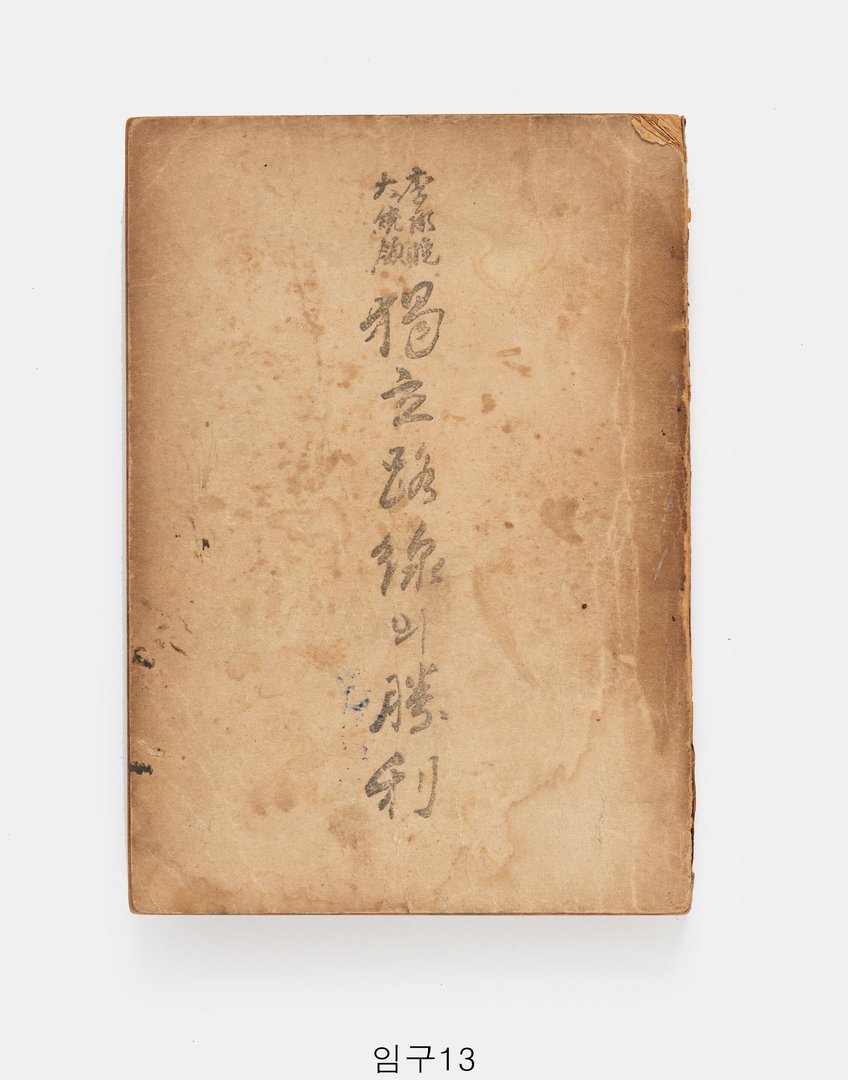 李承晩
大統領
獨立路線의勝利
임구13